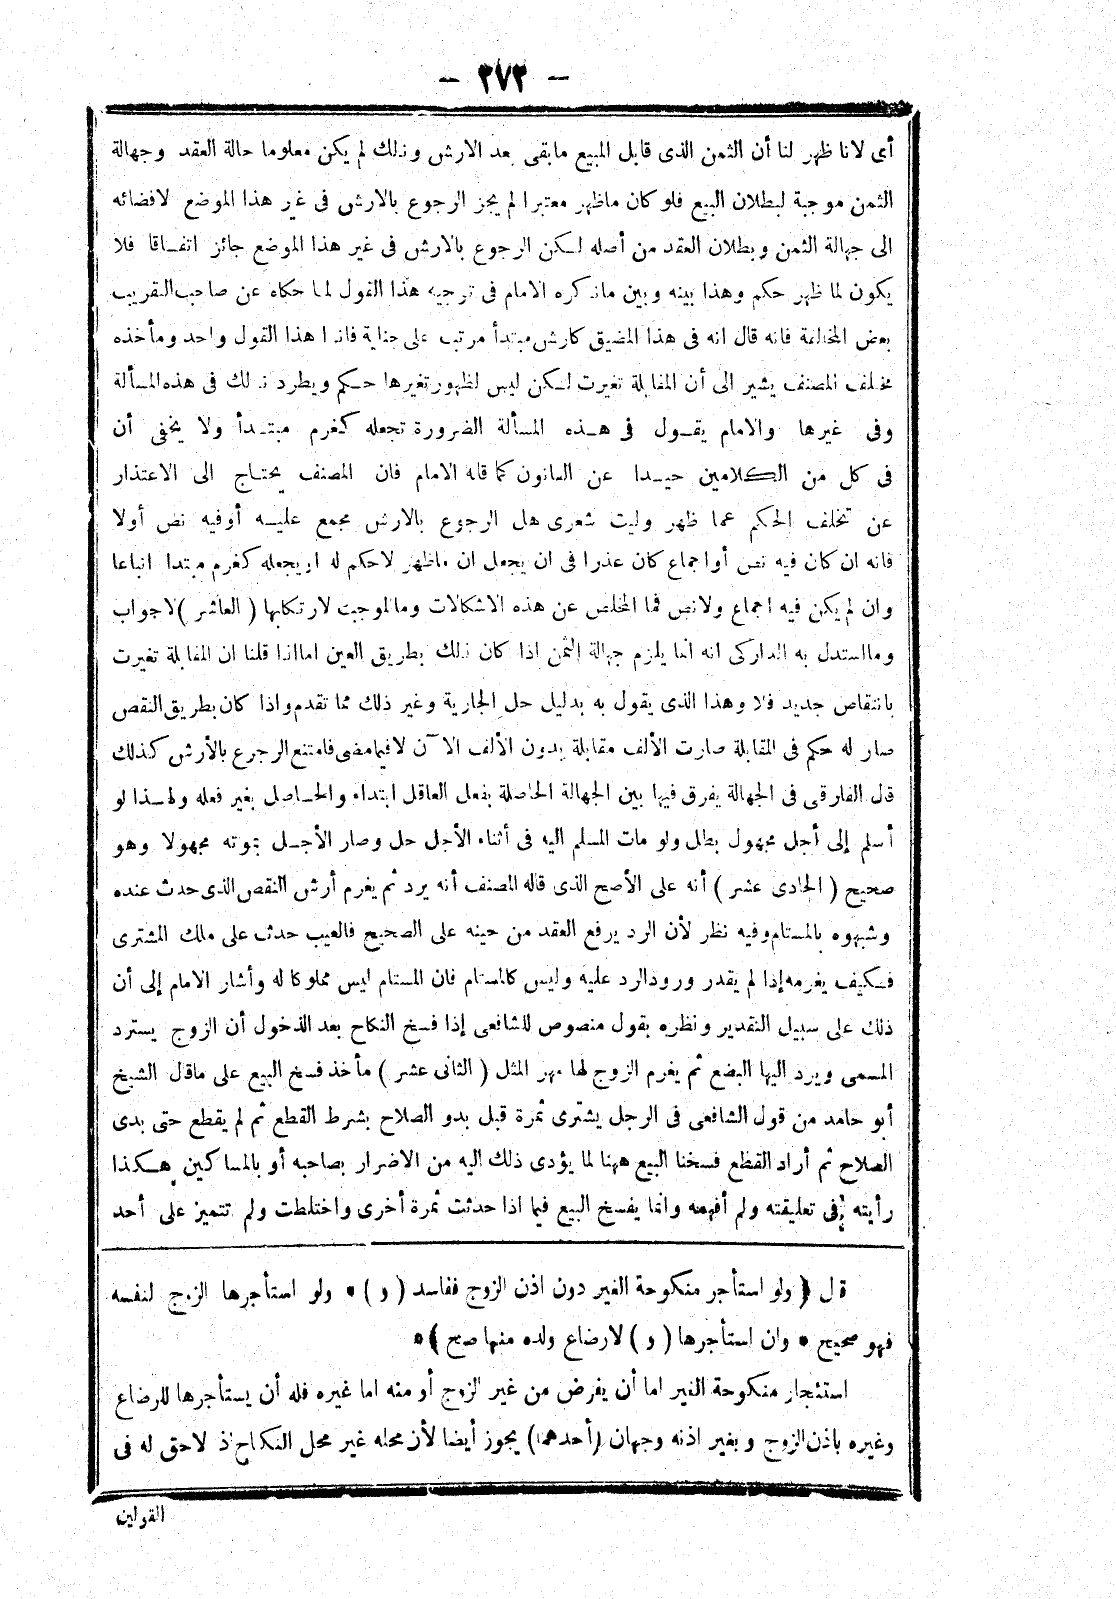 — ٢٧٢ —
أى لانا ظهر لنا أن الثمن الذى قابل المبيع مابقى بعد الارش وذلك لم يكن معلوما حالة العقد وجهالة
الثمن موجبة لبطلان البيع فلو كان ماظهر معتبرا لم يجز الرجوع بالارش فى غير هذا الموضع لافضائه
الى جهالة الثمن وبطلان العقد من أصله لكن الرجوع بالارش فى غير هذا الموضع جائز اتفاقا فلا
يكون لما ظهر حكم وهذا بينه وبين ماذكره الامام فى توجيه هذا القول لما حكاه عن صاحب التقريب
بعض المخالفة فانه قال انه فى هذا المضيق كارش مبتدأ مرتب على جناية فاذا هذا القول واحد ومأخذه
مختلف المصنف يشير الى أن المقابلة تغيرت لكن ليس لظهور تغيرها حكم ويطرد ذلك فى هذه المسألة
وفى غيرها والامام يقول فى هذه المسألة الضرورة تجعله كغرم مبتدأ ولا يخفى أن
فى كل من الكلامين حيدا عن القانون كما قاله الامام فان المصنف يحتاج الى الاعتذار
عن تخلف الحكم عما ظهر وليت شعرى هل الرجوع بالارش مجمع عليه أوفيه نص أولا
فانه ان كان فيه نص أواجماع كان عذرا فى ان يجعل ان ماظهر لاحكم له اويجعله كغرم مبتدا اتباعا
وان لم يكن فيه اجماع ولانص فما المخلص عن هذه الاشكالات وماالموجب لارتكابها ( العاشر ) لاجواب
ومااستدل به الداركى انه انما يلزم جهالة الثمن اذا كان ذلك بطريق العين امااذا قلنا ان المقابلة تغيرت
بانتقاص جديد فلا وهذا الذى يقول به بدليل حل الجارية وغير ذلك مما تقدم واذا كان بطريق النقص
صار له حكم فى المقابلة صارت الألف مقابلة بدون الألف الآن لافيمامضى فامتنع الرجوع بالأرش كذلك
قال الفارقى فى الجهالة يفرق فيها بين الجهالة الحاصلة بفعل العاقل ابتداء والحاصل بغير فعله ولهذا لو
أسلم إلى أجل مجهول بطل ولو مات المسلم اليه فى أثناء الأجل حل وصار الأجل بموته مجهولا وهو
صحيح ( الحادى عشر ) أنه على الأصح الذى قاله المصنف أنه يرد ثم يغرم أرش النقص الذى حدث عنده
وشبهوه بالمستام وفيه نظر لأن الرد يرفع العقد من حينه على الصحيح فالعيب حدث على ملك المشترى
فكيف يغرمه إذا لم يقدر ورودالرد عليه وليس كالمستام فان المستام ليس مملوكا له وأشار الامام إلى أن
ذلك على سبيل التقدير ونظره بقول منصوص للشافعى إذا فسخ النكاح بعد الدخول أن الزوج يسترد
المسمى ويرد اليها البضع ثم يغرم الزوج لها مهر المثل ( الثانى عشر ) مأخذ فسخ البيع على ماقال الشيخ
أبو حامد من قول الشافعى فى الرجل يشترى ثمرة قبل بدو الصلاح بشرط القطع ثم لم يقطع حتى بدى
الصلاح ثم أراد القطع فسخنا البيع ههنا لما يؤدى ذلك اليه من الاضرار بصاحبه أو بالمساكين هكذا
رأيته فى تعليقته ولم أفهمه وانما يفسخ البيع فيما اذا حدثت ثمرة أخرى واختلطت ولم تتميز على أحد
قال ( ولو استأجر منكوحة الغير دون اذن الزوج ففاسد ( و ) * ولو استأجرها الزوج لنفسه
فهو صحيح * وان استأجرها ( و ) لارضاع ولده منها صح ) *
استئجار منكوحة الغير اما أن يفرض من غير الزوج أو منه اما غيره فله أن يستأجرها للرضاع
وغيره باذن الزوج وبغير اذنه وجهان (أحدهما) يجوز أيضا لأن محله غير محل النكاح اذ لاحق له فى
القولين